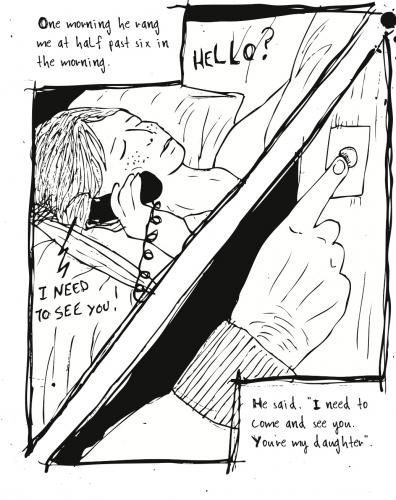 One morning he rang
me at half past six in
the morning.
HELLO?
I NEED
TO SEE YOU!
He said. "I need to
come and see you.
You're my daughter".